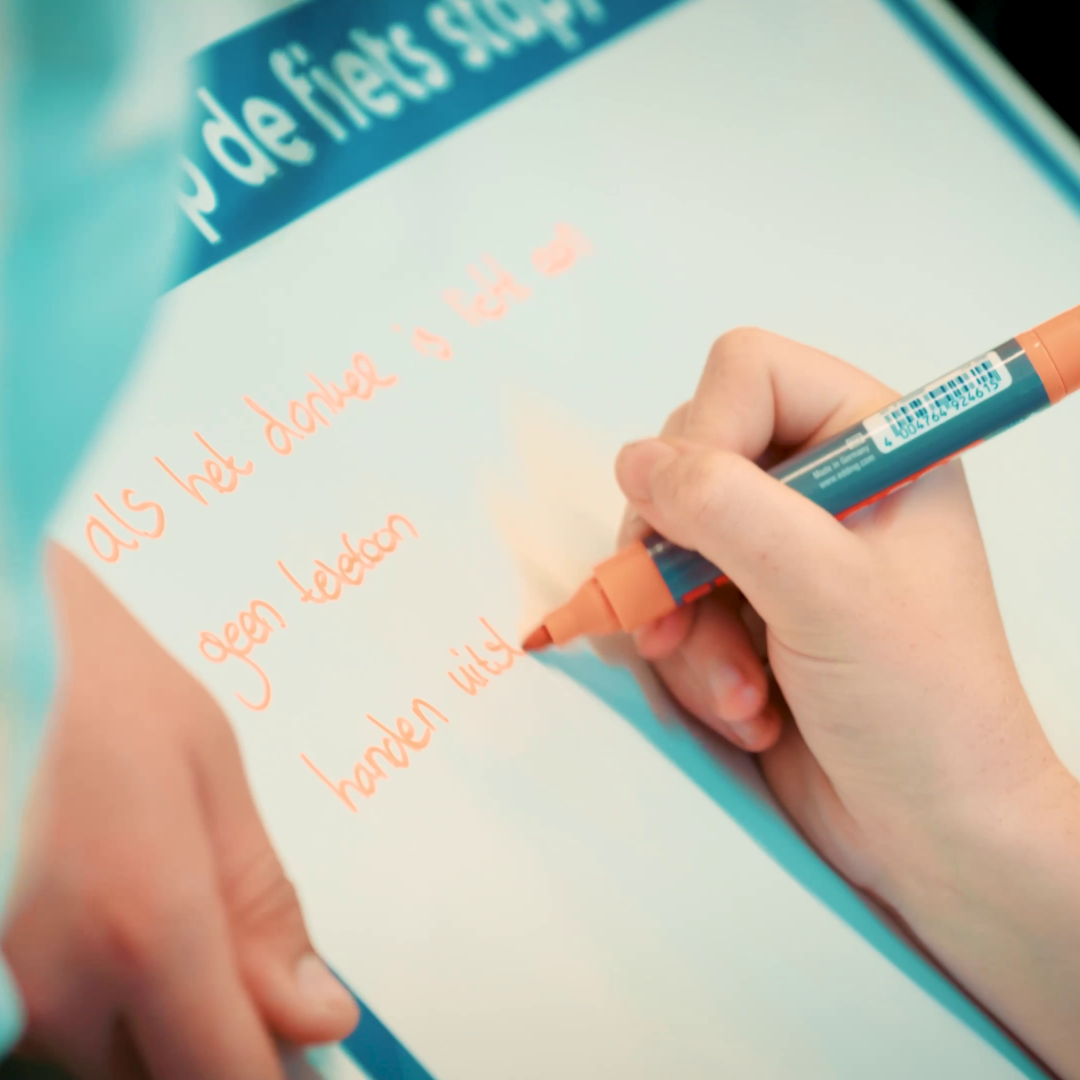 p de fiets stap,
als het donker is licht aan
geen telefoon
handen uitst
Made in Germany
www.edding.com
4 004764 924615